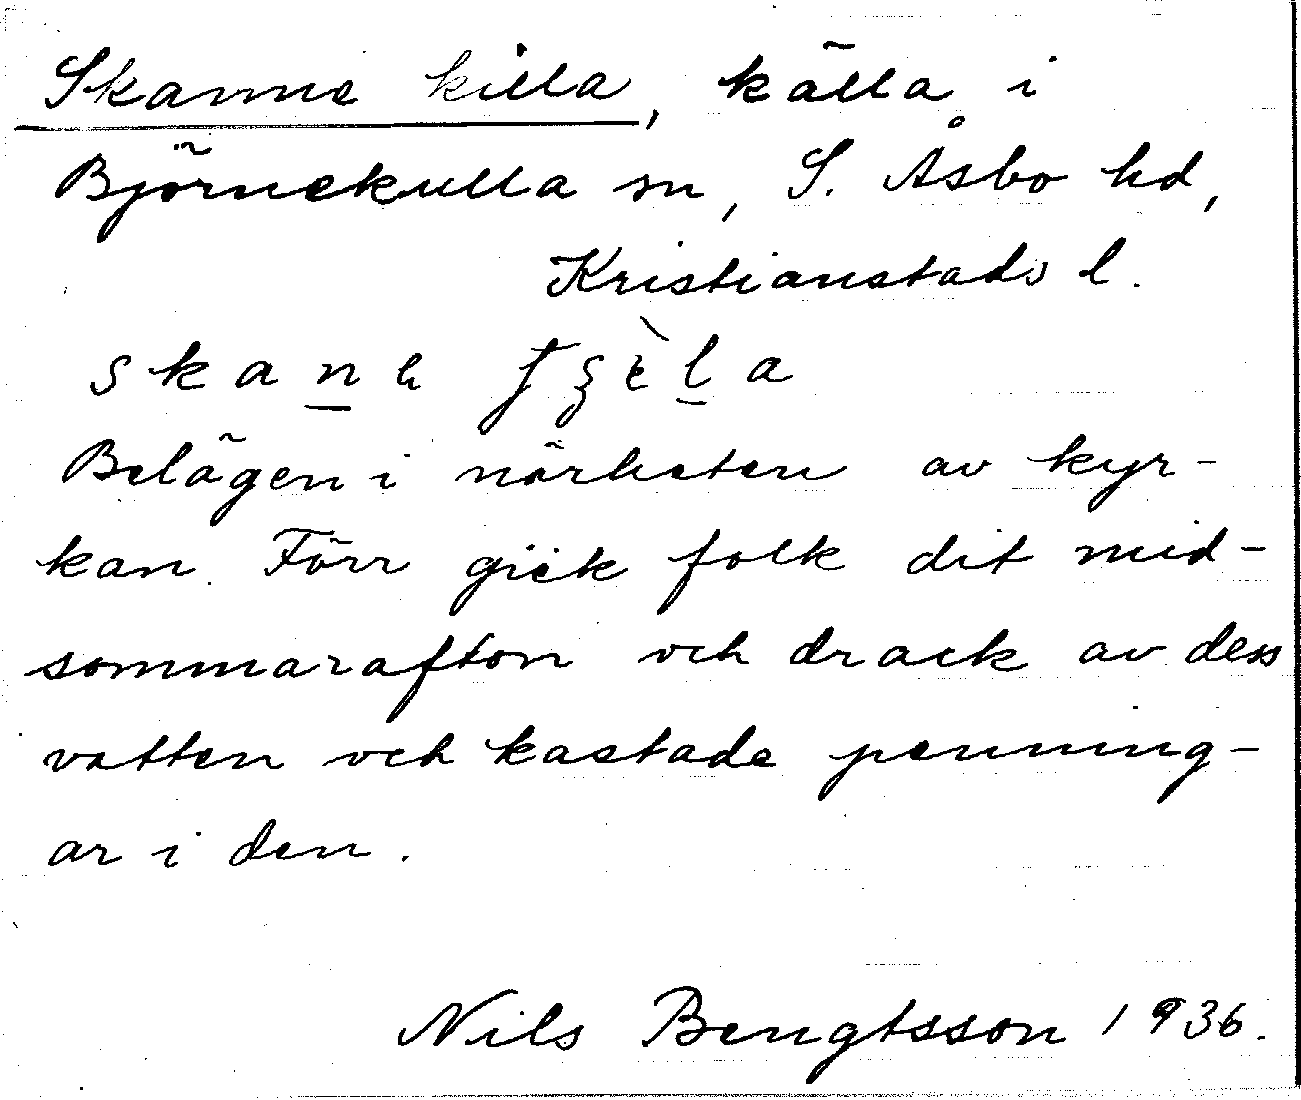 Skanne killa, källa i
Björnekulla sn, S. Åsbo hd,
Kristianstads l.
skana
Belägen i närheten av kyr-
kan. Förr gick folk dit mid-
sommarafton och drack av dess
vatten och kastade penning-
ar i den.
Nils Bengtsson 1936.